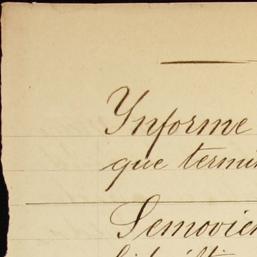 Ynforme
que termin
Semovien